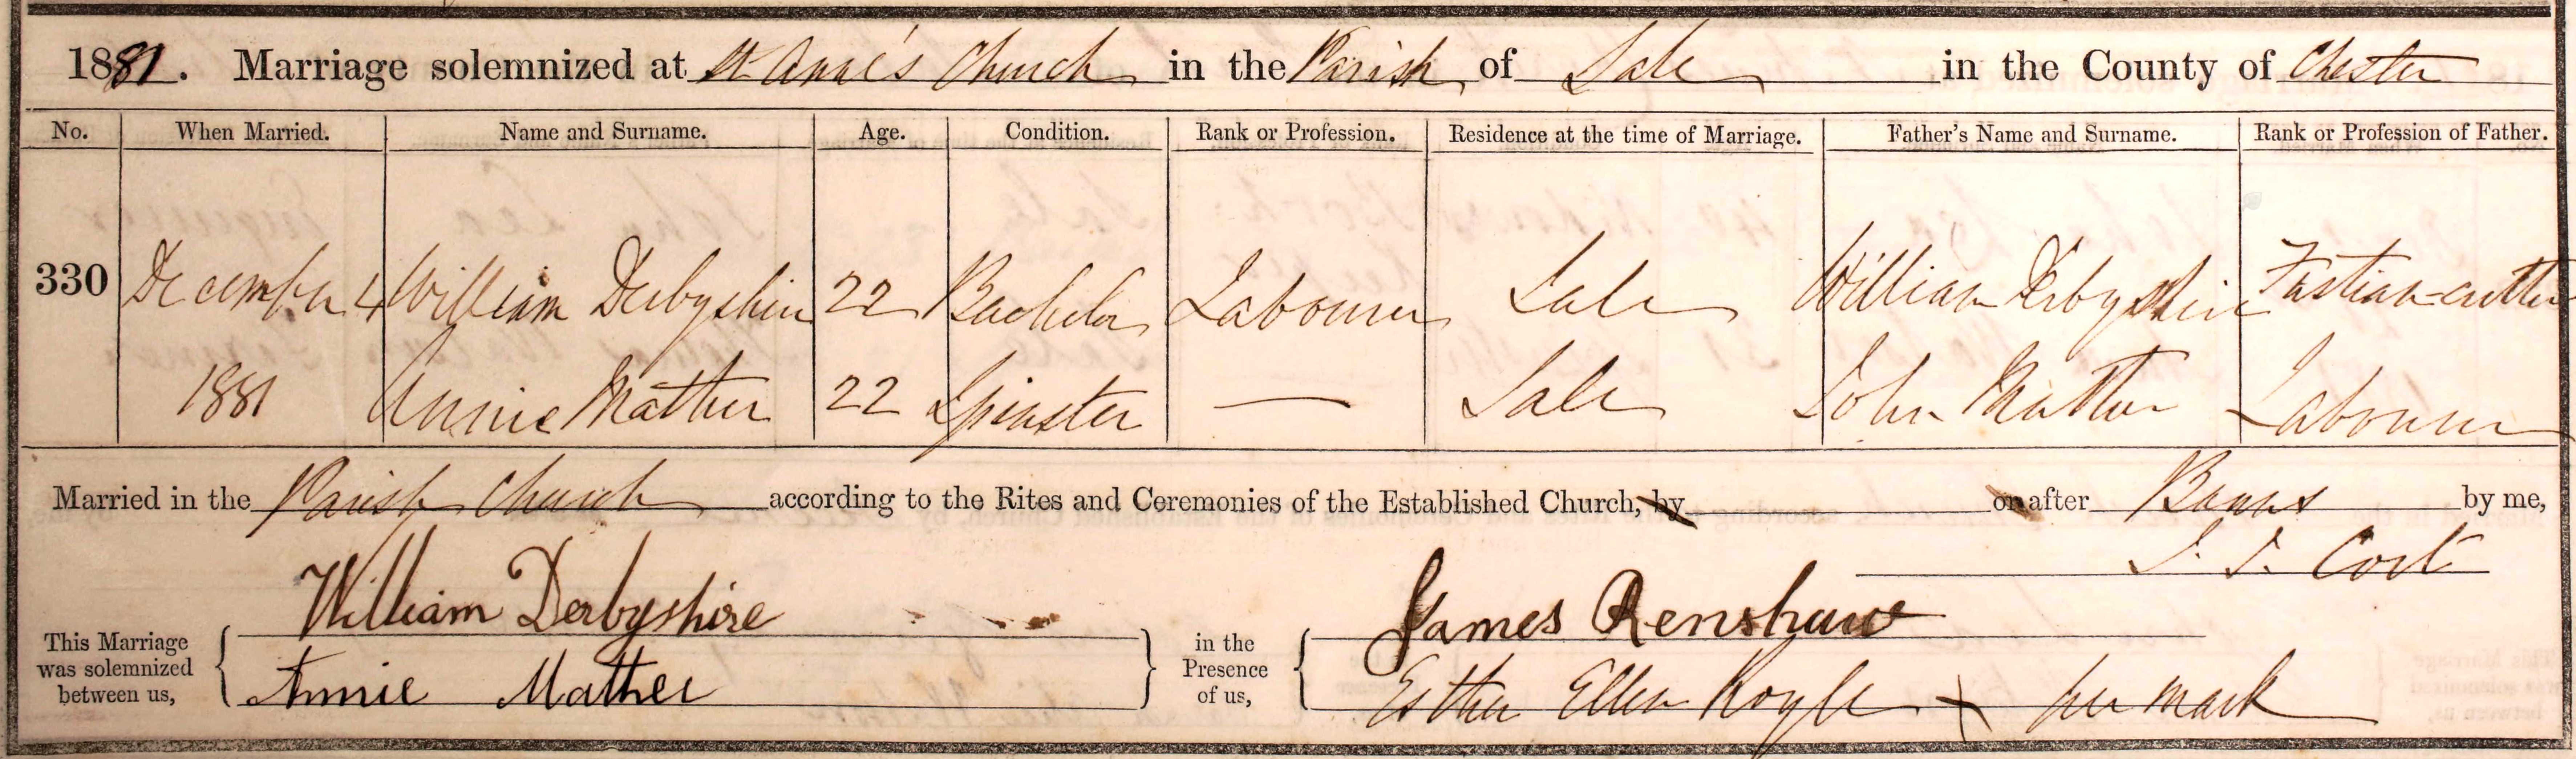 1881. Marriage solemnized at St Anne's Church in the Parish of Sale in the County of Chester
No. When Married. Name and Surname. Age. Condition. Rank or Profession. Residence at the time of Marriage. Father's Name and Surname. Rank or Profession of Father.
330 December 4 William Derbyshire 22 Bachelor Labourer Sale William Derbyshire Fustian-cutter
1881 Annie Mather 22 Spinster — Sale John Mather Labourer
Married in the Parish Church according to the Rites and Ceremonies of the Established Church, by or after Banns by me,
William Derbyshire
James Renshaw
This Marriage was solemnized between us,
Annie Mather
in the Presence of us,
Esther Ellen Royle X her mark